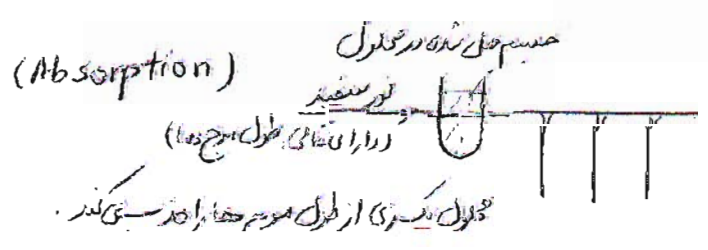 جسم حل شده در محلول
(Absorption)
نور سفید
(دارای تمامی طول موج ها)
محلول یکسری از طول موج ها را جذب می کند.